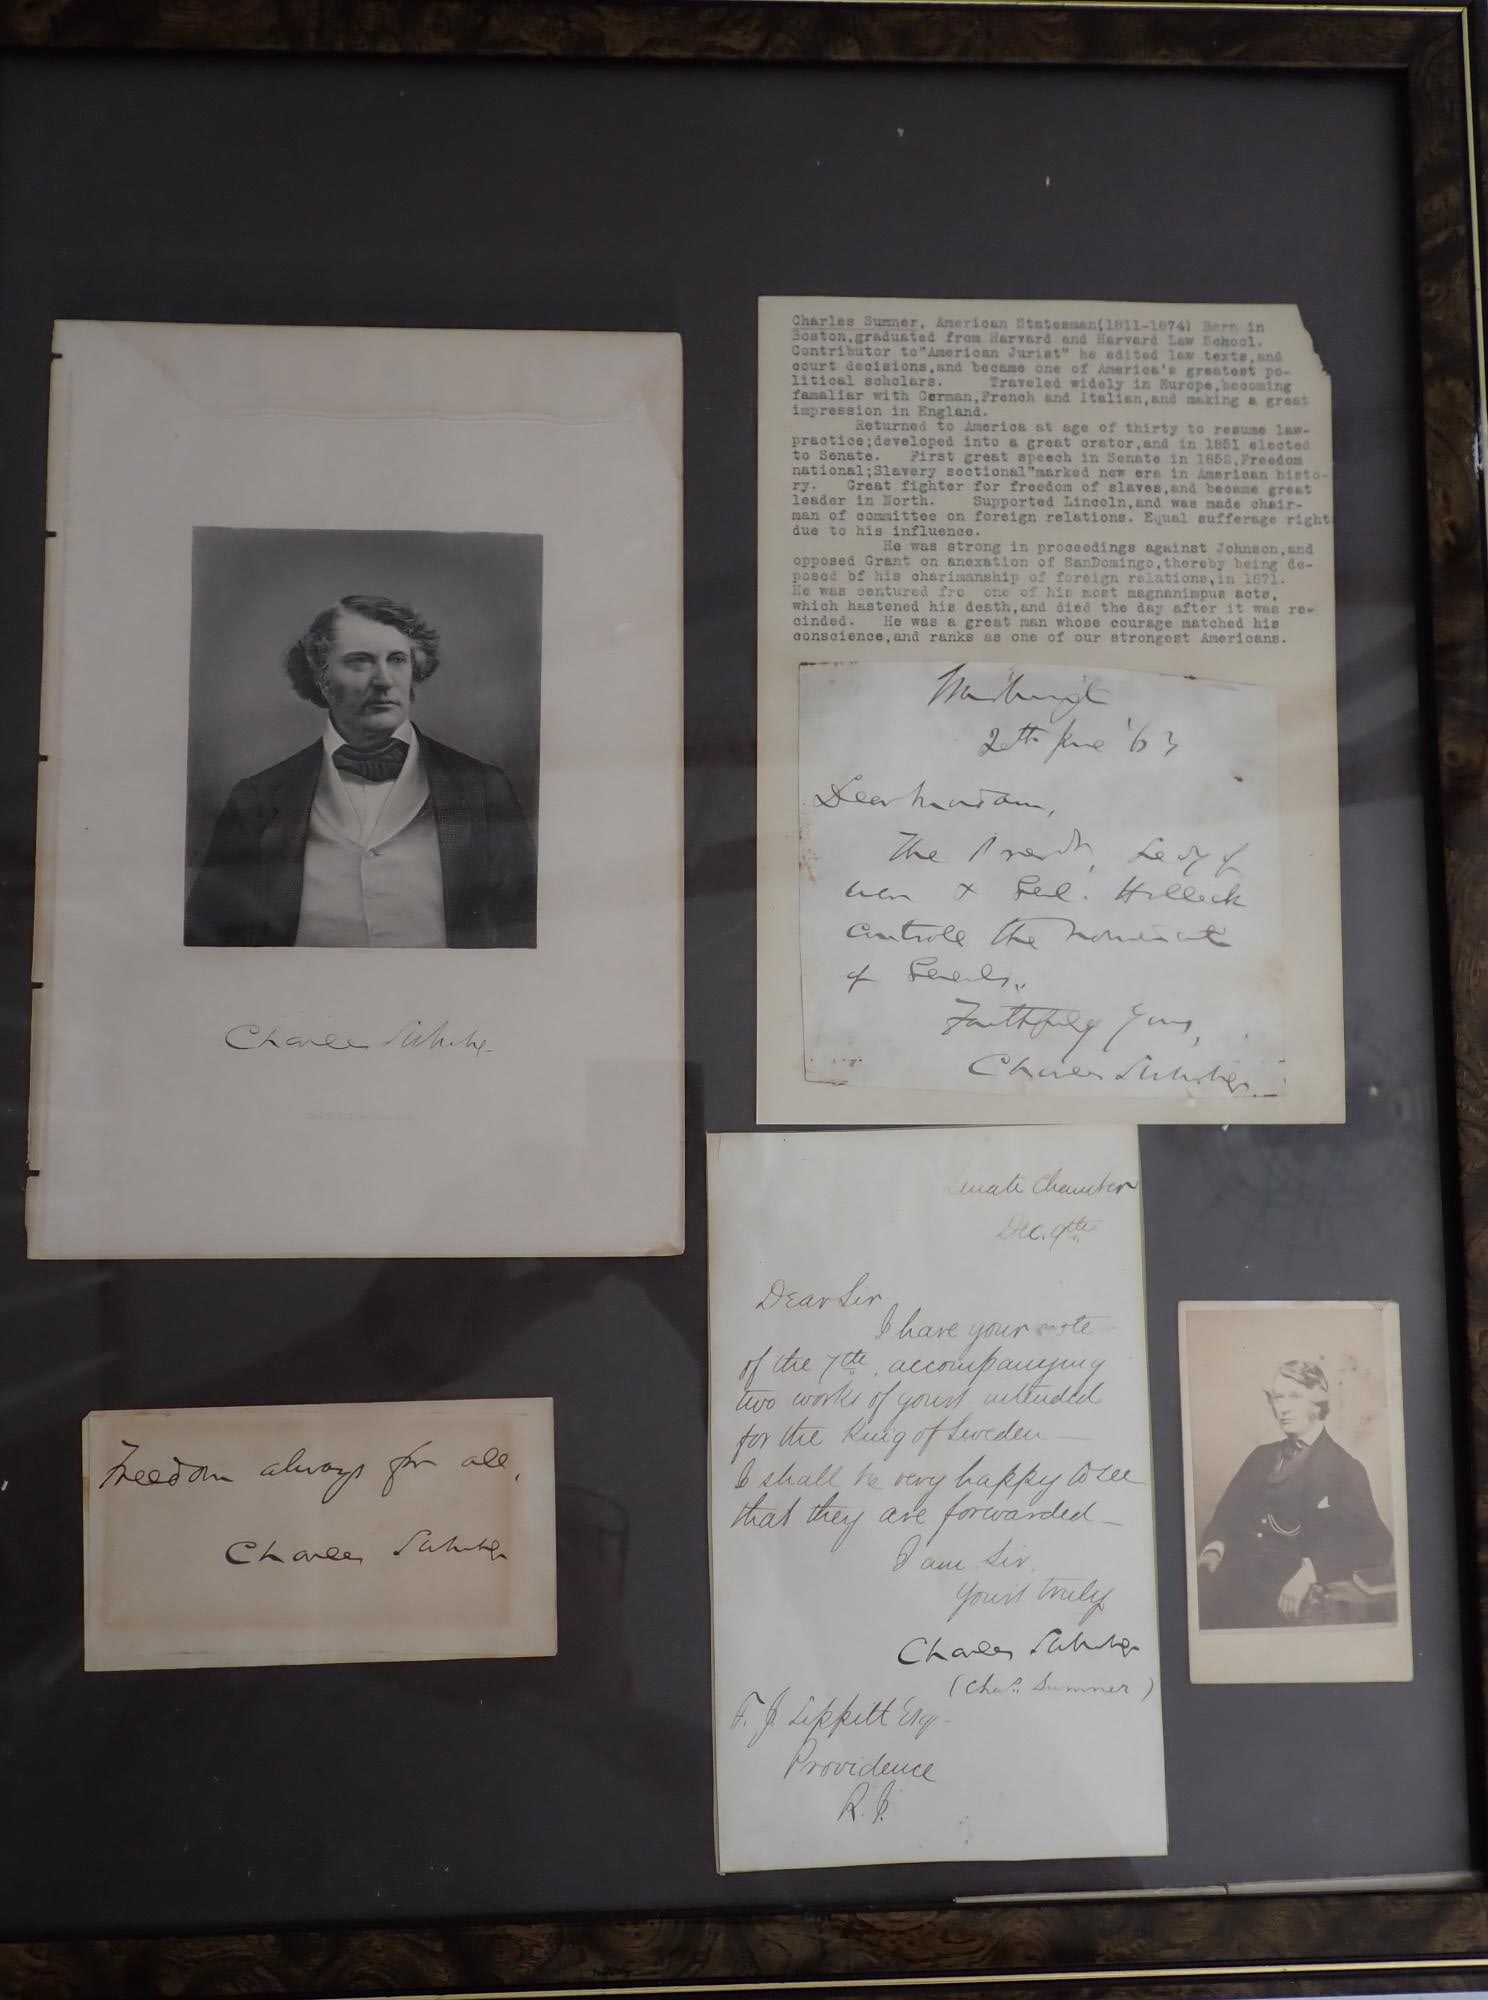 Charles Sumner
Charles Sumner, American Statesman(1811-1874) Born in
Boston,graduated from Harvard and Harvard Law School.
Contributor to"American Jurist" he edited law texts,and
court decisions,and became one of America's greatest po-
litical scholars. Traveled widely in Europe,becoming
famaliar with German,French and Italian,and making a great
impression in England.
Returned to America at age of thirty to resume law-
practice;developed into a great orator,and in 1851 elected
to Senate. First great speech in Senate in 1852,Freedom
national;Slavery sectional"marked new era in American histo-
ry. Great fighter for freedom of slaves,and became great
leader in North. Supported Lincoln,and was made chair-
man of committee on foreign relations. Equal sufferage right
due to his influence.
He was strong in proceedings against Johnson,and
opposed Grant on anexation of SanDomingo,thereby being de-
posed bf his charimanship of foreign relations,in 1871.
He was centured fro one of his most magnanimpus acts,
which hastened his death,and died the day after it was re-
cinded. He was a great man whose courage matched his
conscience,and ranks as one of our strongest Americans.
20th June '63
Dear Madam,
The Presdt, Secy of
War & Genl. Halleck
controle the
of Generals.
Faithfully Yours,
Charles Sumner
Senate Chamber
Dec. 9th
Dear Sir
I have your note
of the 7th, accompanying
two works of yours intended
for the King of Sweden —
I shall be very happy to see
that they are forwarded —
I am Sir,
Yours truly
Charles Sumner
(Chas. Sumner)
F. J. Lippitt Esq.
Providence
R. I.
Freedom always for all,
Charles Sumner